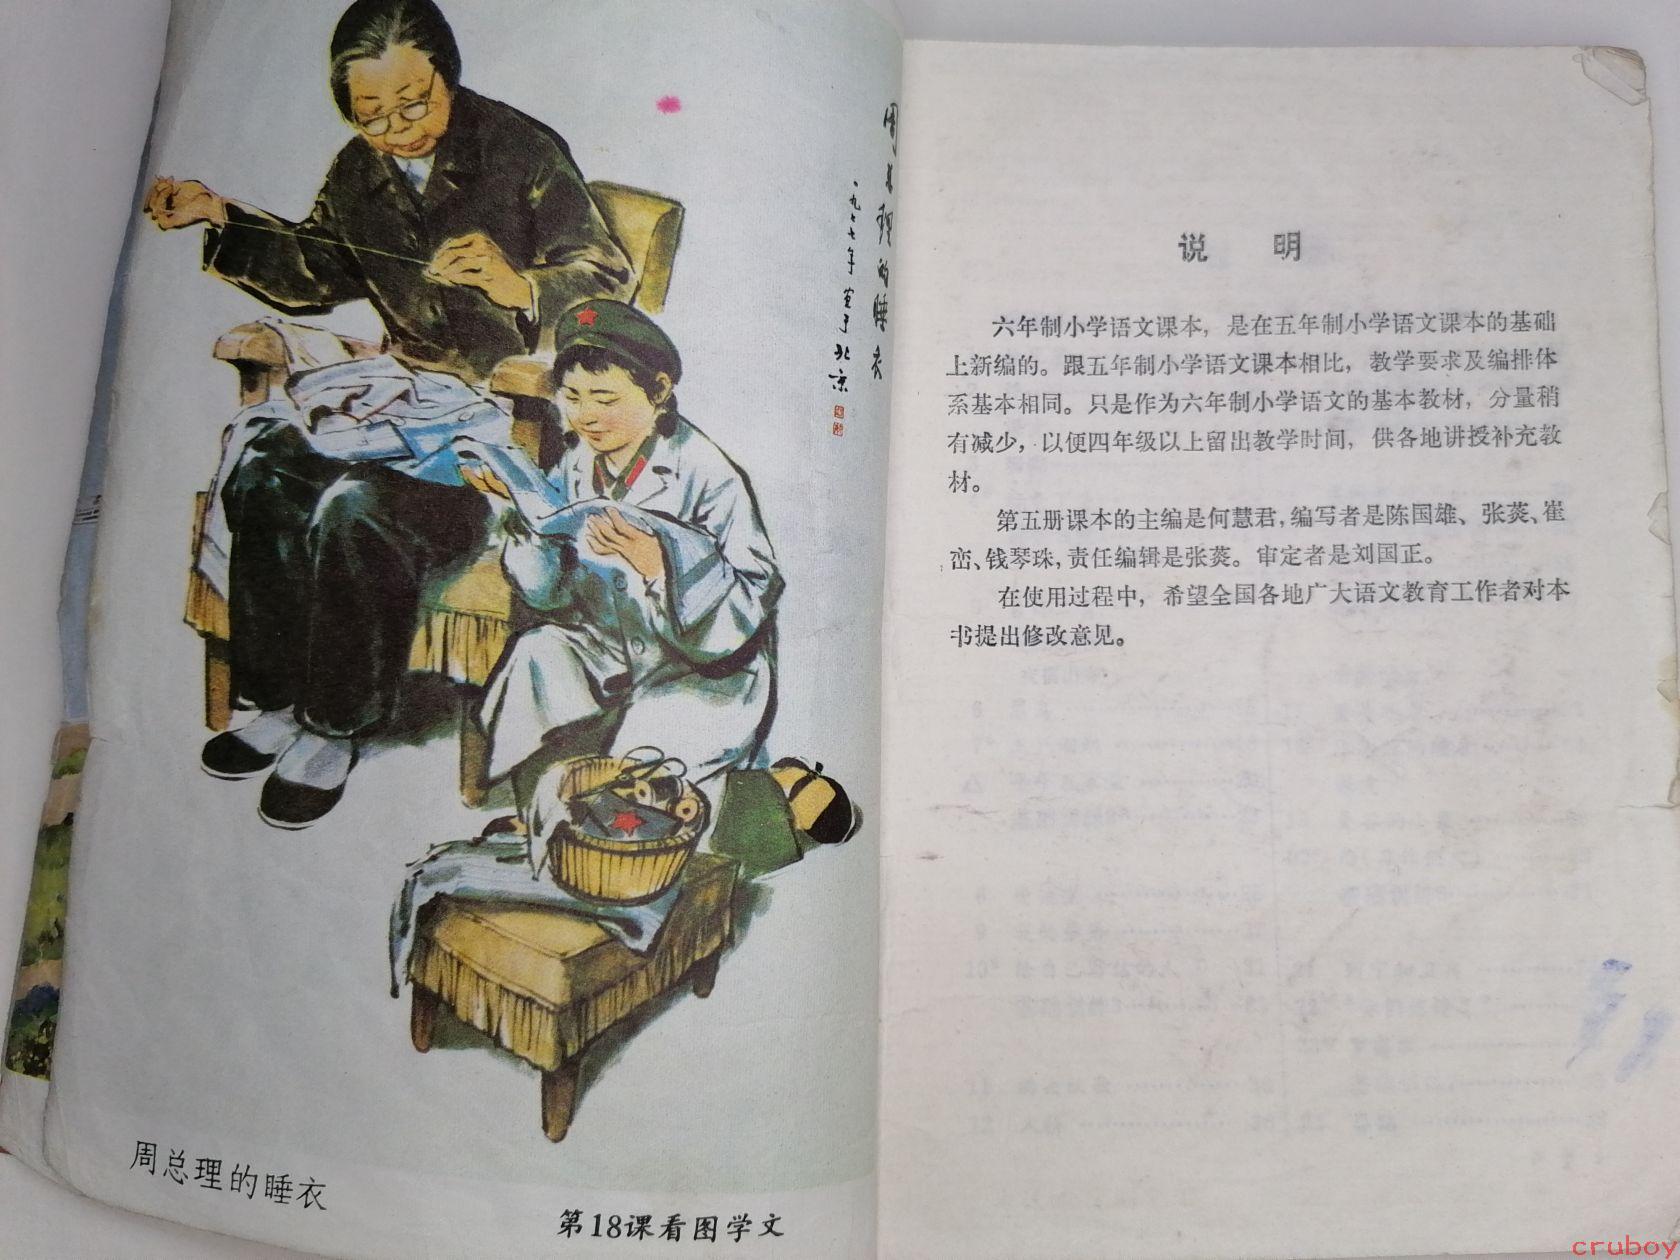 周总理的睡衣
一九七七年
北京
周总理的睡衣
第18课看图学文
说 明
六年制小学语文课本，是在五年制小学语文课本的基础
上新编的。跟五年制小学语文课本相比，教学要求及编排体
系基本相同。只是作为六年制小学语文的基本教材，分量稍
有减少，以便四年级以上留出教学时间，供各地讲授补充教
材。
第五册课本的主编是何慧君，编写者是陈国雄、张蒺、崔
峦、钱琴珠，责任编辑是张蒺。审定者是刘国正。
在使用过程中，希望全国各地广大语文教育工作者对本
书提出修改意见。
cruboy